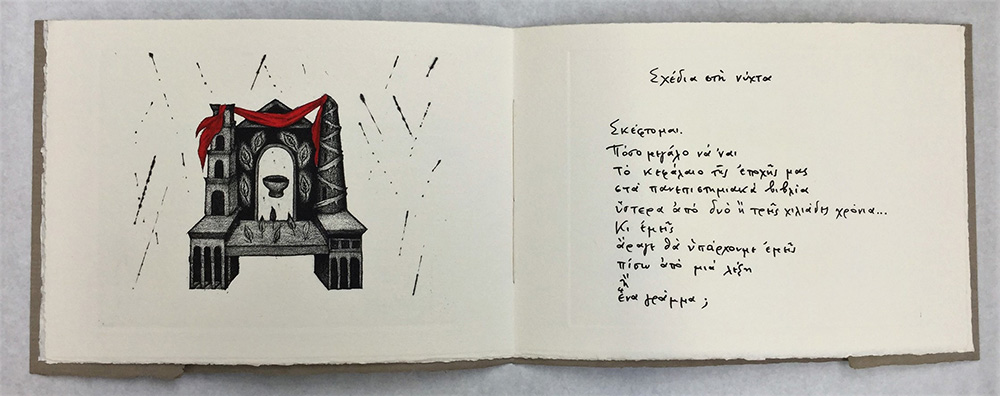 Σχέδια στὴ νύχτα
Σκέφτομαι.
Πόσο μεγάλο νά 'ναι
τὸ κεφάλαιο τῆς ἐποχῆς μας
στὰ πανεπιστημιακὰ βιβλία
ὕστερα ἀπὸ δυὸ ἢ τρεῖς χιλιάδες χρόνια...
Κι ἐμεῖς
ἄραγε θὰ ὑπάρχουμε ἐμεῖς
πίσω ἀπὸ μιὰ λέξη
ἢ
ἕνα γράμμα;